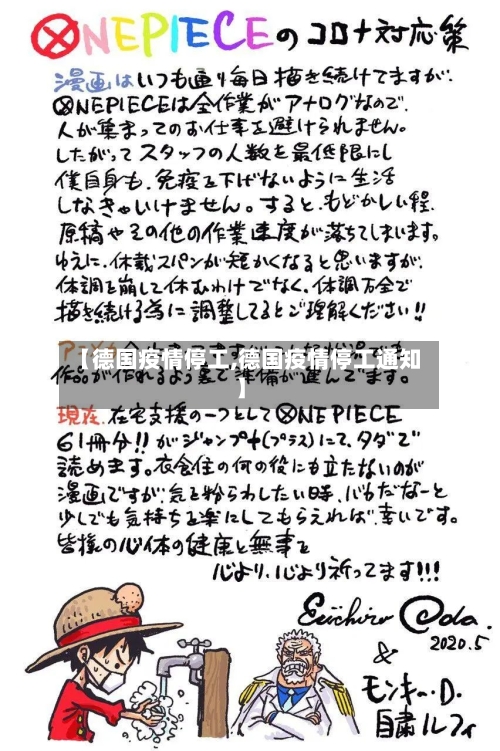 ONEPIECEのコロナ対応策
漫画はいつも通り毎日描き続けてますが、
ONEPIECEは全作業がアナログなので、
人が集まってのお仕事を避けられません。
したがってスタッフの人数を最低限にし
僕自身も、免疫を下げないように生活
しなきゃいけません。すると、もどかしい程、
原稿やその他の作業速度が落ちてしまいます。
ゆえに、休載スパンが短かくなると思いますが、
体調を崩して休むわけでなく、体調万全で
描き続ける為に調整してるとご理解ください!!
【德国疫情停工,德国疫情停工通知
】
作品が作れるよう裏で準備が進んでます。
現在、在宅支援の一つとしてONE PIECE
61冊分!!がジャンプ+(プラス)にて、タダで
読めます。衣食住の何の役にも立たないのが
漫画ですが、気を紛らわしたい時、ハラだなーと
少しでも気持ちを楽にしてもらえれば、幸いです。
皆様の心体の健康と無事を
心より、心より祈ってます!!!
Eiichiro Oda.
2020.5
&
モンキー・D・
自粛ルフィ